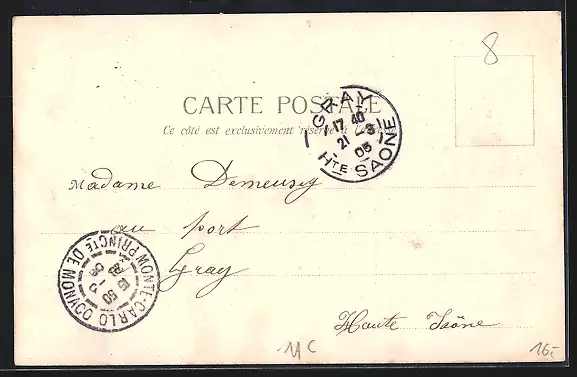 8
CARTE POSTALE
Ce côté est exclusivement réservé à
GRAY
17 40
21
03
HTE SAONE
Madame Demeusey
au port
Gray
Haute Saône
MONTE-CARLO
PRINCTE DE MONACO
15 50
16